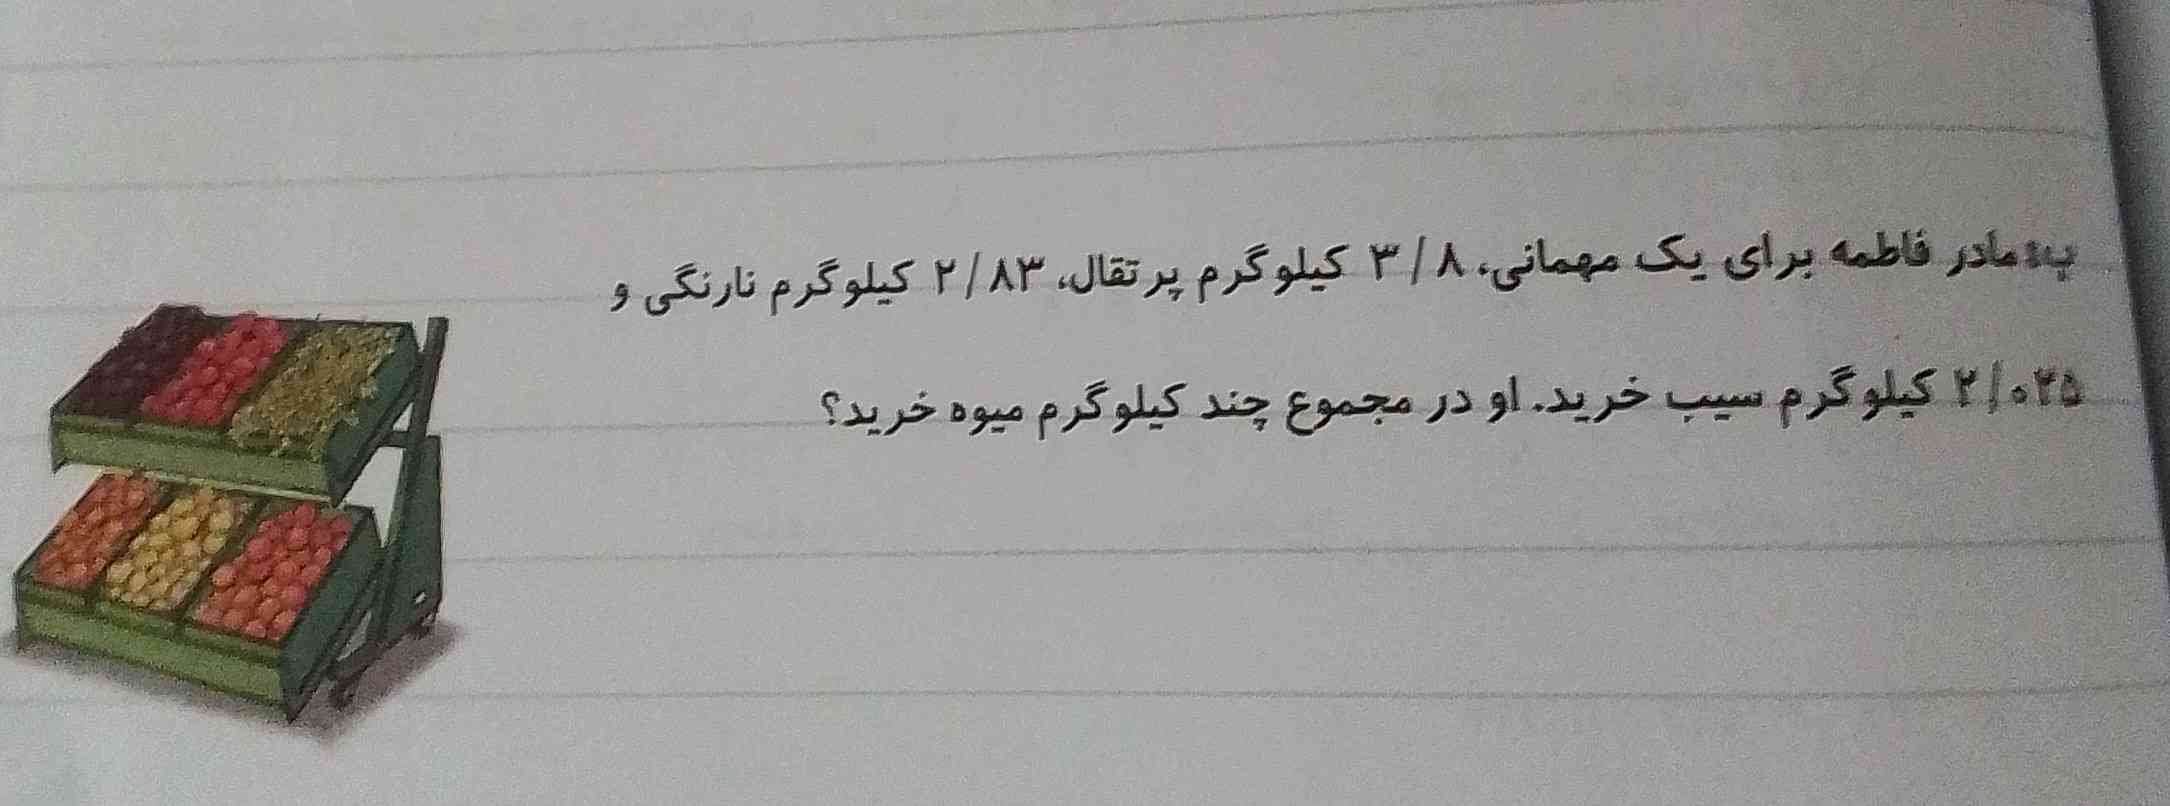 پ: مادر فاطمه برای یک مهمانی، ۳/۸ کیلوگرم پرتقال، ۲/۸۳ کیلوگرم نارنگی و
۲/۰۲۵ کیلوگرم سیب خرید. او در مجموع چند کیلوگرم میوه خرید؟